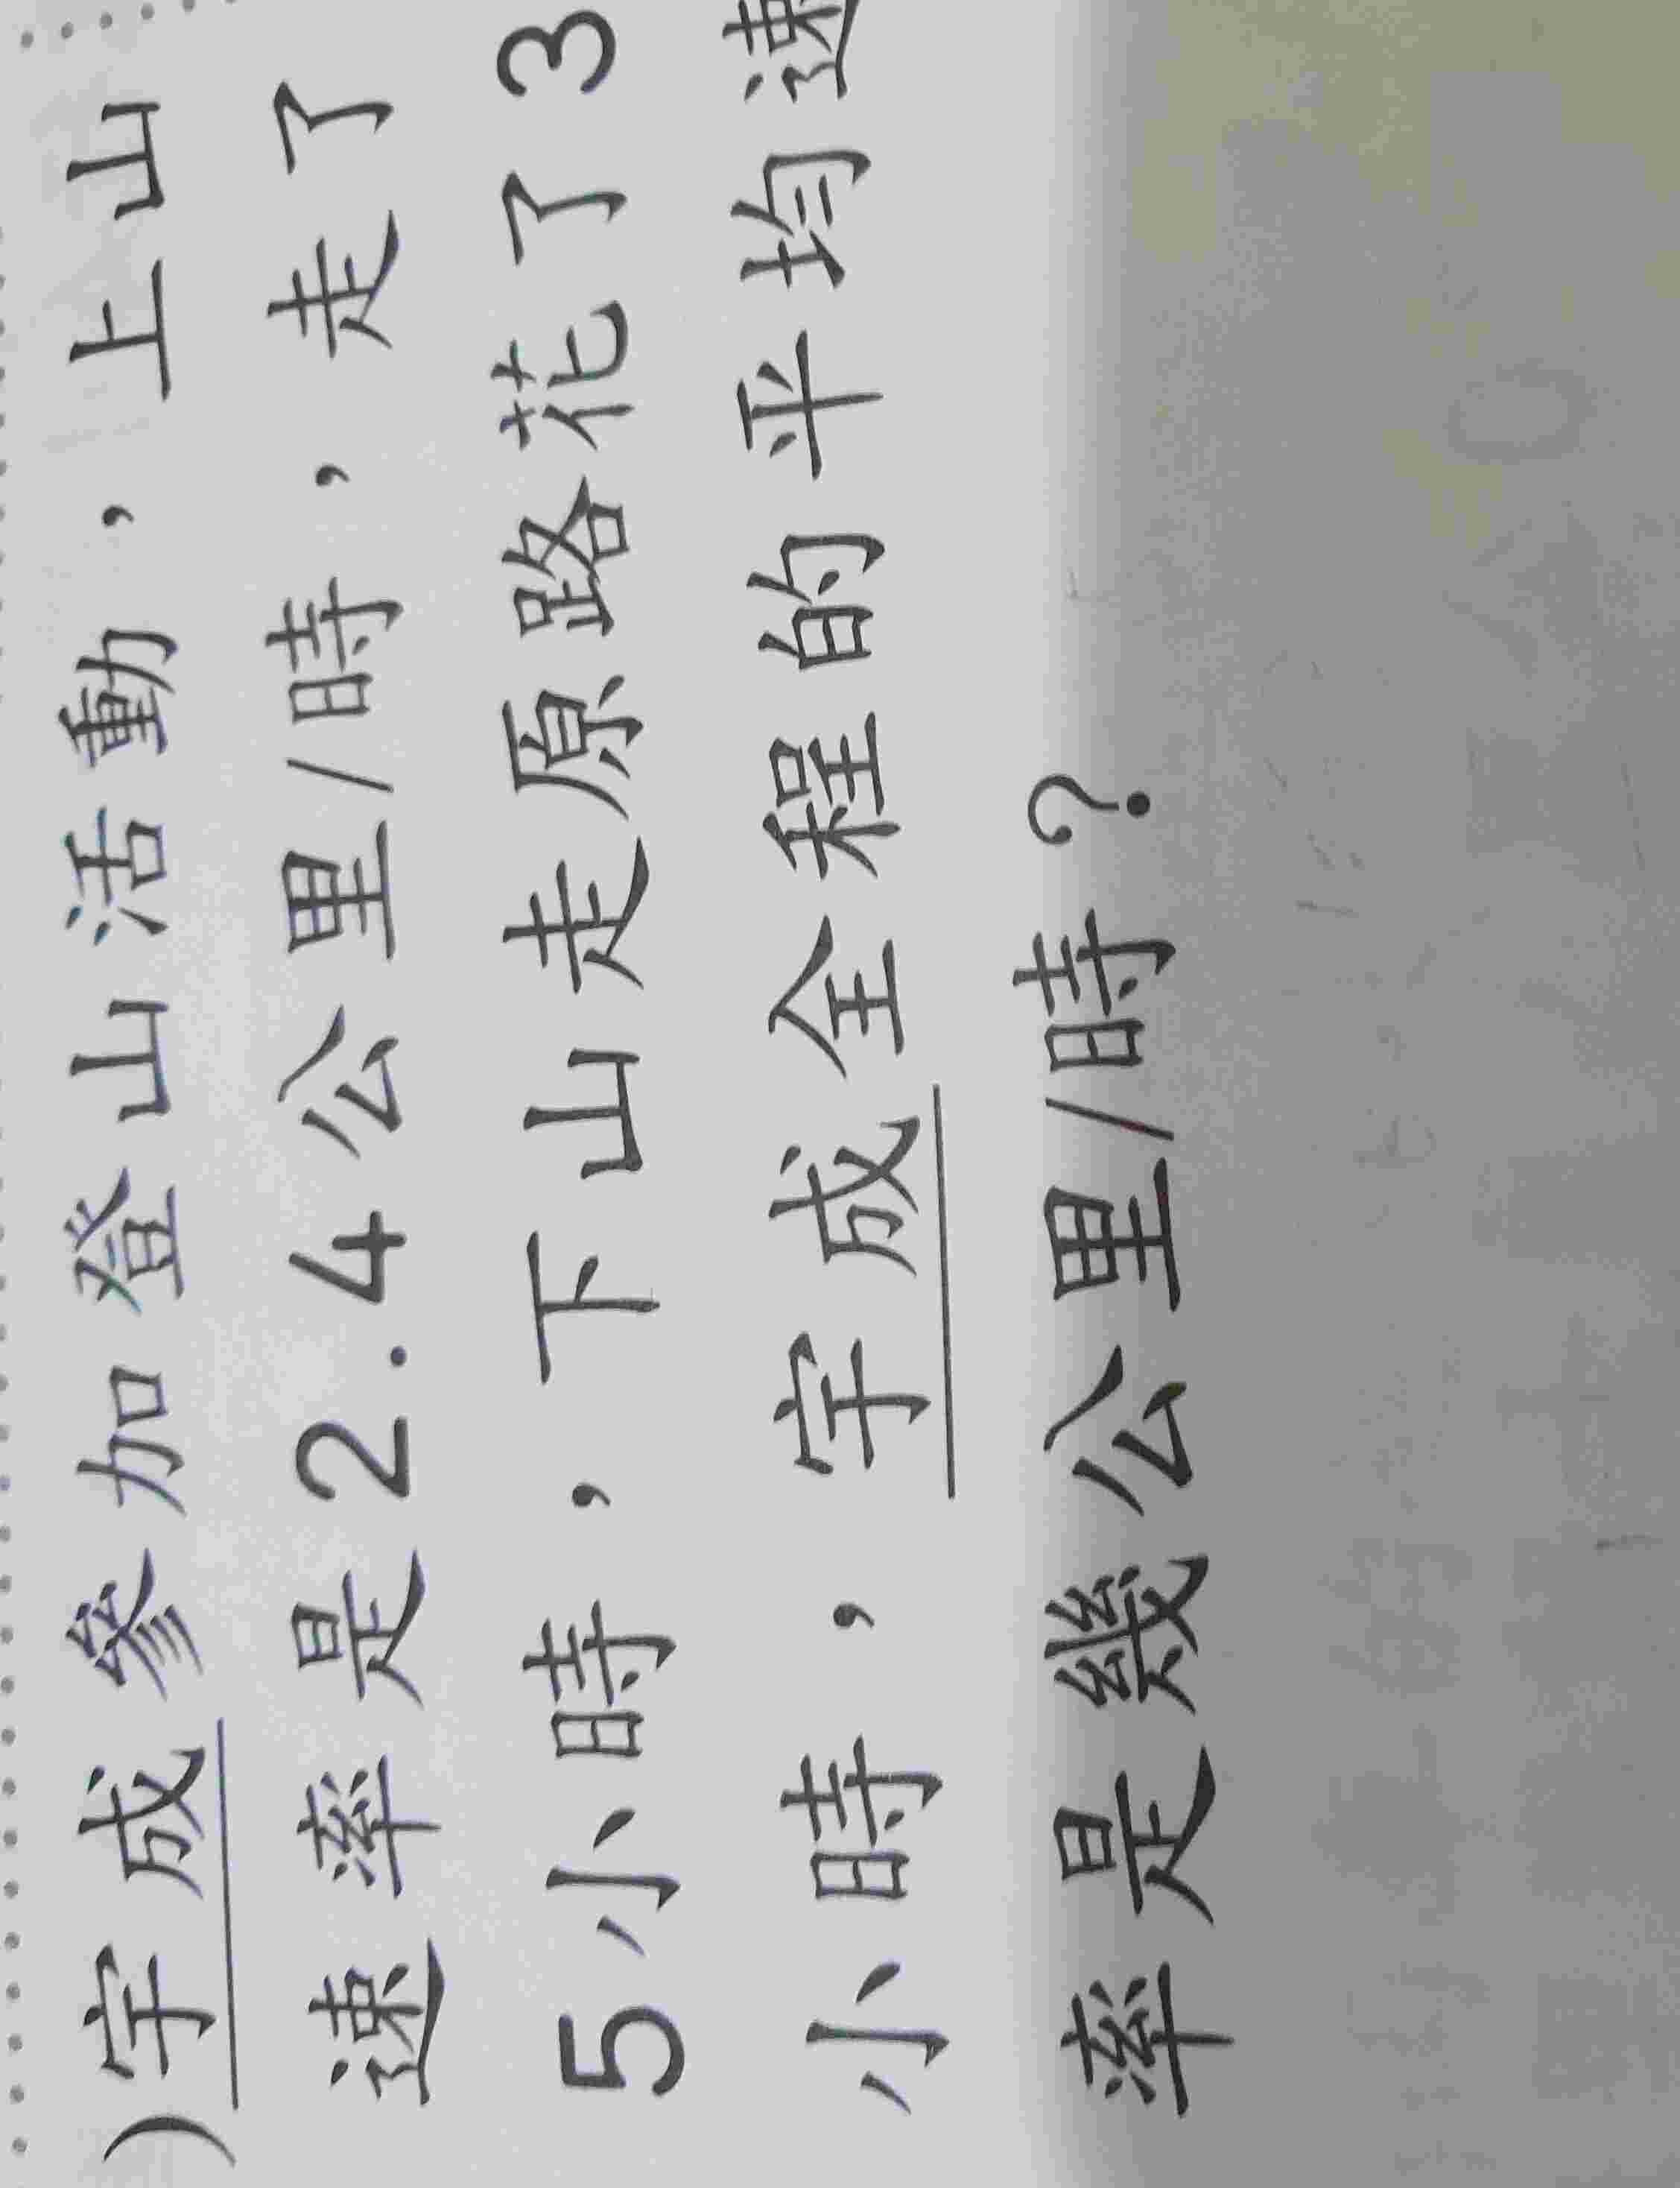 )宇成參加登山活動，上山
速率是2.4公里/時，走了
5小時，下山走原路花了3
小時，宇成全程的平均速
率是幾公里/時？